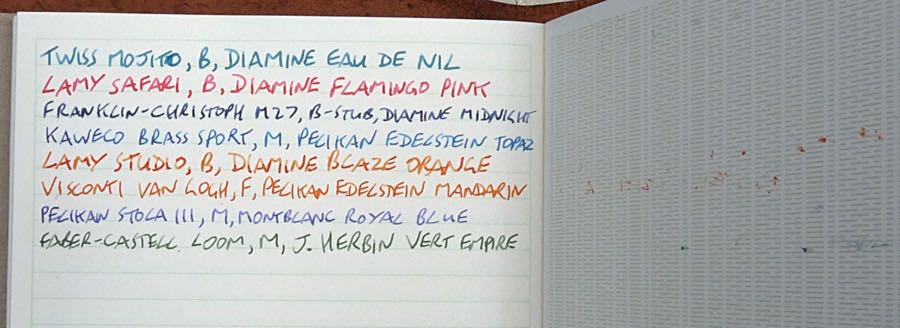 TWISS MOJITO, B, DIAMINE EAU DE NIL
LAMY SAFARI, B, DIAMINE FLAMINGO PINK
FRANKLIN-CHRISTOPH M27, B-STUB, DIAMINE MIDNIGHT
KAWECO BRASS SPORT, M, PELIKAN EDELSTEIN TOPAZ
LAMY STUDIO, B, DIAMINE BLAZE ORANGE
VISCONTI VAN GOGH, F, PELIKAN EDELSTEIN MANDARIN
PELIKAN STOLA III, M, MONTBLANC ROYAL BLUE
FABER-CASTELL LOOM, M, J. HERBIN VERT EMPIRE